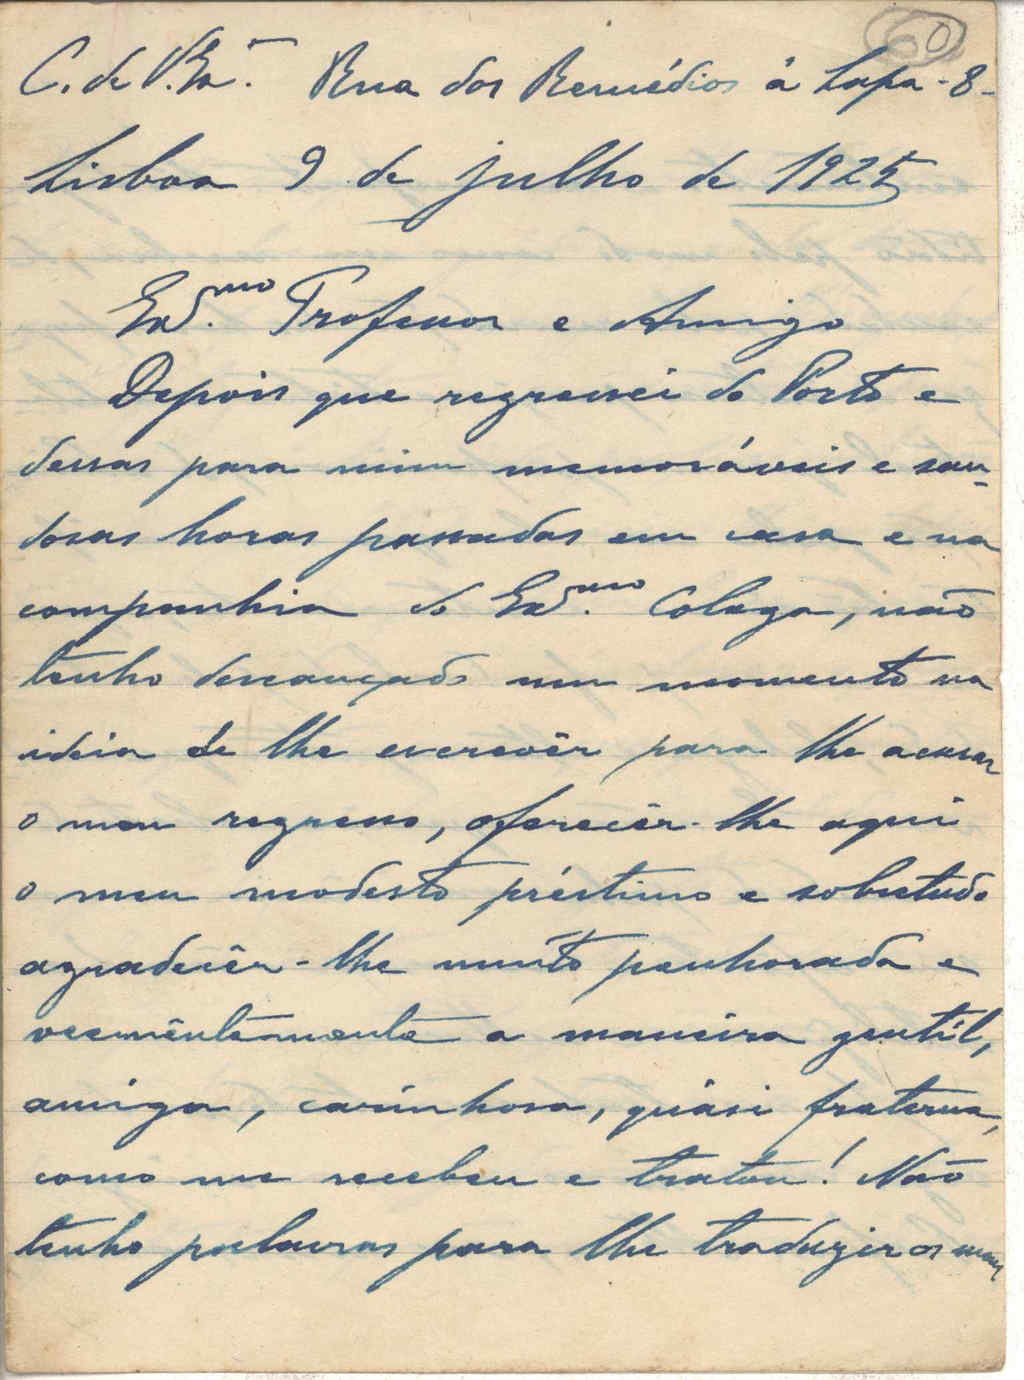 60
C. de V. Exª. Rua dos Remédios á Lapa - 8 -
Lisboa 9 de julho de 1925
Exmo. Professor e Amigo
Depois que regressei do Porto e
dessas para mim memoráveis e sau-
dosas horas passadas em casa e na
companhia do Exmo. Colega, não
tenho descançado um momento na
ideia de lhe escrevêr para lhe acusar
o meu regresso, oferecêr-lhe aqui
o meu modesto préstimo e sobretudo
agradecêr-lhe muito penhorada e
veementemente a maneira gentil,
amiga, carinhosa, quási fraterna,
como me recebeu e tratou! Não
tenho palavras para lhe traduzir os meus